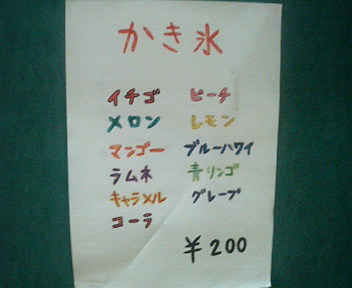 かき氷
イチゴ ピーチ
メロン レモン
マンゴー ブルーハワイ
ラムネ 青リンゴ
キャラメル グレープ
コーラ
¥200